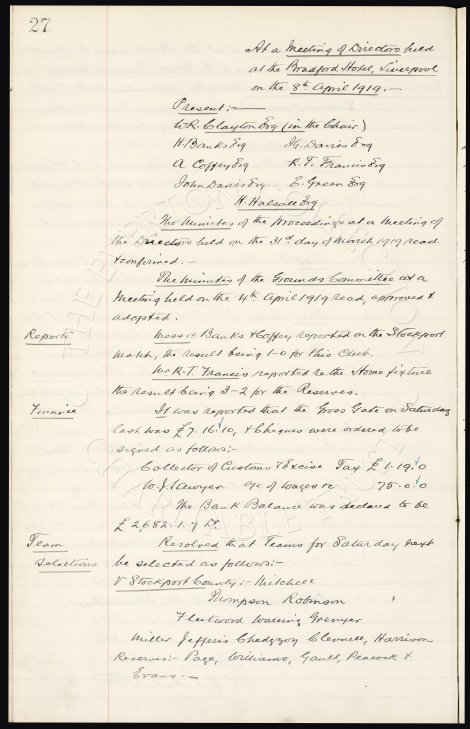 27
At a Meeting of Directors held
at the Bradford Hotel, Liverpool
on the 8th April 1919.—
Present:—
W.R. Clayton Esq (in the Chair)
H. Banks Esq Th. Davies Esq
A Coffey Esq R.T. Francis Esq
John Davies Esq E. Green Esq
H. Halsall Esq
The Minutes of the Proceedings at a Meeting of
the Directors held on the 31st day of March 1919 read
& confirmed.—
The Minutes of the Grounds Committee at a
Meeting held on the 4th April 1919 read, approved &
adopted.
Reports Messrs Banks & Coffey reported on the Stockport
match, the result being 1-0 for this Club.
Mr R.T. Francis reported re the Home fixture
the result being 3-2 for the Reserves.
Finance It was reported that the Gross Gate on Saturday
last was £7.16.10, & Cheques were ordered to be
signed as follows:—
Collector of Customs & Excise Tax £1.19.0
W.J. Sawyer a/c of Wages &c 75.0.0
The Bank Balance was declared to be
£2682.1.7 Dr
Team Resolved that Teams for Saturday next
Selections be selected as follows:—
V Stockport County:— Mitchell
Thompson Robinson
Fleetwood Wareing Grenyer
Miller Jefferis Chedgzoy Clennell, Harrison
Reserves:— Page, Williams, Gault, Peacock &
Evans.—
THE EVERTON COLLECTION
CHARITABLE TRUST